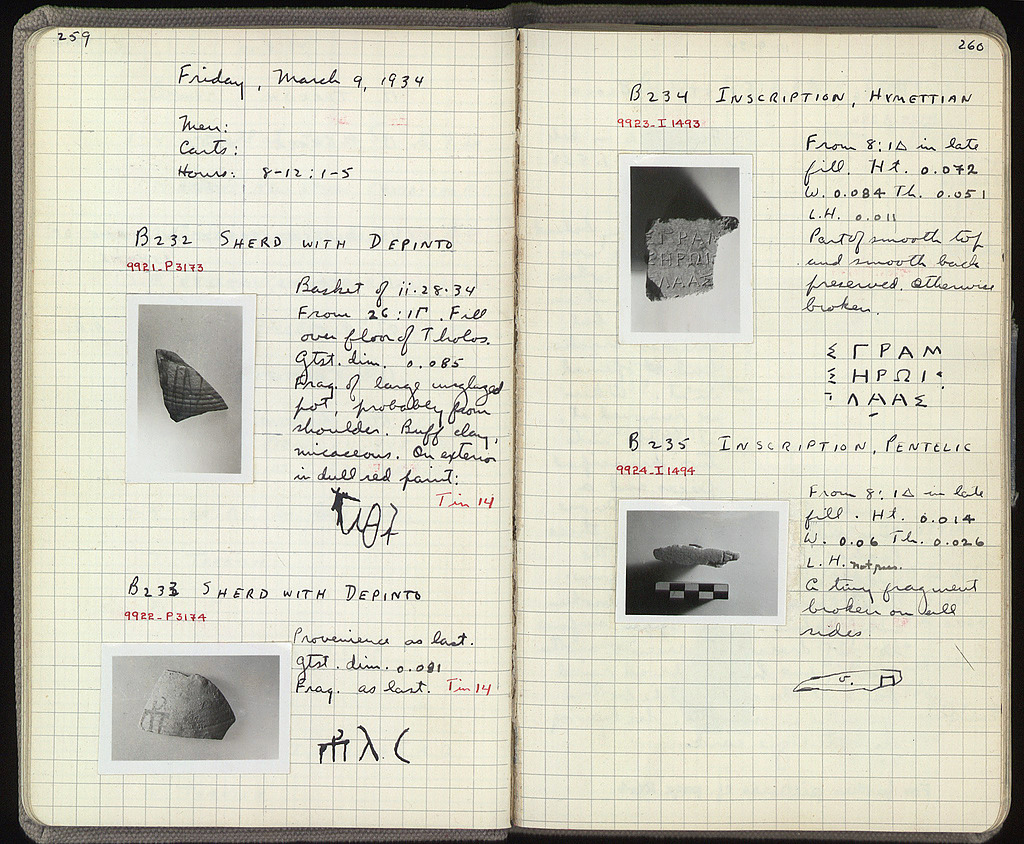 259
Friday, March 9, 1934
Men:
Carts:
Hours: 8-12 : 1-5
B232 SHERD WITH DEPINTO
9921-P3173
Basket of ii.28.34
From 26:ΙΓ. Fill
over floor of Tholos.
Gtst. dim. 0.085
Frag. of large unglazed
pot, probably from
shoulder. Buff clay,
micaceous. On exterior
in dull red paint:
Tin 14
B233 SHERD WITH DEPINTO
9922-P3174
Provenience as last.
Gtst. dim. 0.091
Frag. as last. Tin 14
260
B234 INSCRIPTION, HYMETTIAN
9923-I 1493
From 8:ΙΔ in late
fill. Ht. 0.072
W. 0.084 Th. 0.051
L.H. 0.011
Part of smooth top
and smooth back
preserved. Otherwise
broken.
Σ Γ Ρ Α Μ
Σ Η Ρ Ω Ι :
Λ Α Α Σ
B235 INSCRIPTION, PENTELIC
9924-I 1494
From 8:ΙΔ in late
fill. Ht. 0.014
W. 0.06 Th. 0.026
L.H. not pres.
A tiny fragment
broken on all
sides.
v.